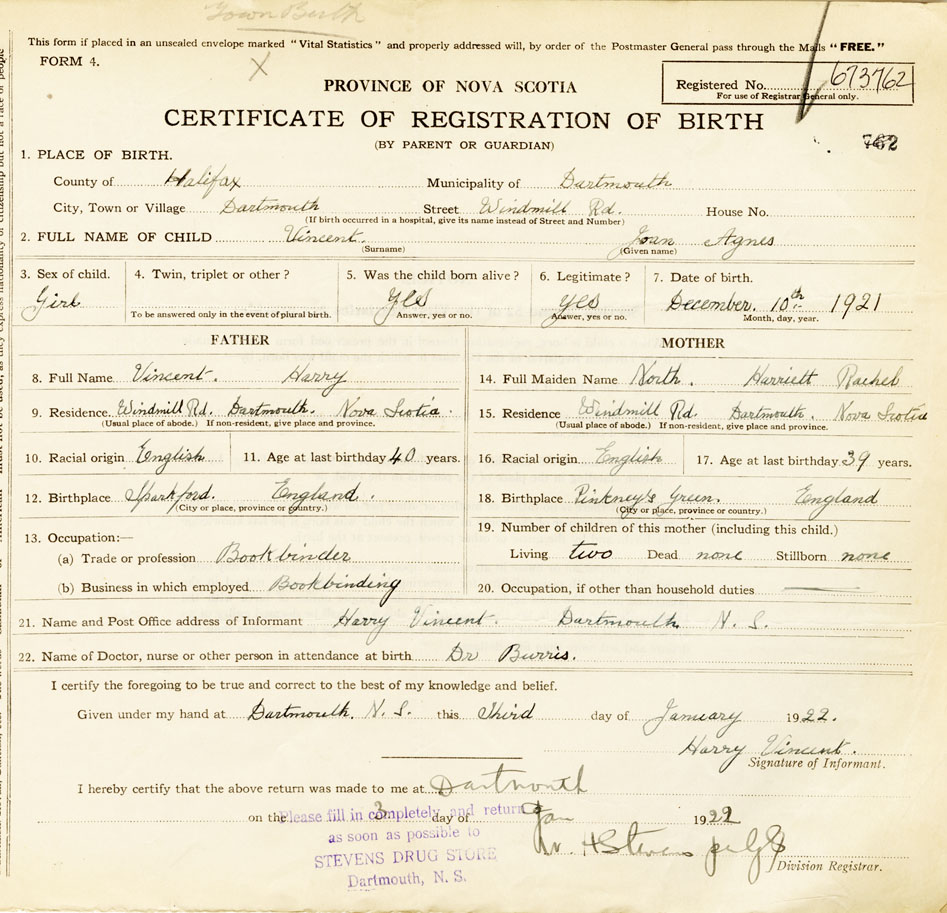 Town Birth
This form if placed in an unsealed envelope marked "Vital Statistics" and properly addressed will, by order of the Postmaster General pass through the Mails "FREE."
FORM 4.
X
PROVINCE OF NOVA SCOTIA
Registered No. 673762
For use of Registrar General only.
CERTIFICATE OF REGISTRATION OF BIRTH
(BY PARENT OR GUARDIAN)
762
1. PLACE OF BIRTH.
County of Halifax Municipality of Dartmouth
City, Town or Village Dartmouth Street Windmill Rd. House No.
(If birth occurred in a hospital, give its name instead of Street and Number)
2. FULL NAME OF CHILD Vincent. Joan Agnes
(Surname) (Given name)
3. Sex of child. 4. Twin, triplet or other? 5. Was the child born alive? 6. Legitimate? 7. Date of birth.
Girl Yes Yes December. 10th 1921
To be answered only in the event of plural birth. Answer, yes or no. Answer, yes or no. Month, day, year.
FATHER MOTHER
8. Full Name Vincent. Harry 14. Full Maiden Name North. Harriett Rachel
9. Residence. Windmill Rd. Dartmouth. Nova Scotia. 15. Residence Windmill Rd. Dartmouth. Nova Scotia
(Usual place of abode.) If non-resident, give place and province. (Usual place of abode.) If non-resident, give place and province.
10. Racial origin English 11. Age at last birthday 40 years. 16. Racial origin English 17. Age at last birthday 39 years.
12. Birthplace Sparkford. England. 18. Birthplace Pinkney's Green. England
(City or place, province or country.) (City or place, province or country.)
13. Occupation:— 19. Number of children of this mother (including this child.)
(a) Trade or profession Bookbinder Living two Dead none Stillborn none
(b) Business in which employed Bookbinding 20. Occupation, if other than household duties
21. Name and Post Office address of Informant Harry Vincent. Dartmouth N. S.
22. Name of Doctor, nurse or other person in attendance at birth Dr Burris.
I certify the foregoing to be true and correct to the best of my knowledge and belief.
Given under my hand at Dartmouth. N. S. this Third day of January 1922.
Harry Vincent.
Signature of Informant.
I hereby certify that the above return was made to me at Dartmouth
on the 3 day of Jan 1922
Please fill in completely and return
as soon as possible to
STEVENS DRUG STORE
Dartmouth, N. S.
H Stevens
Division Registrar.